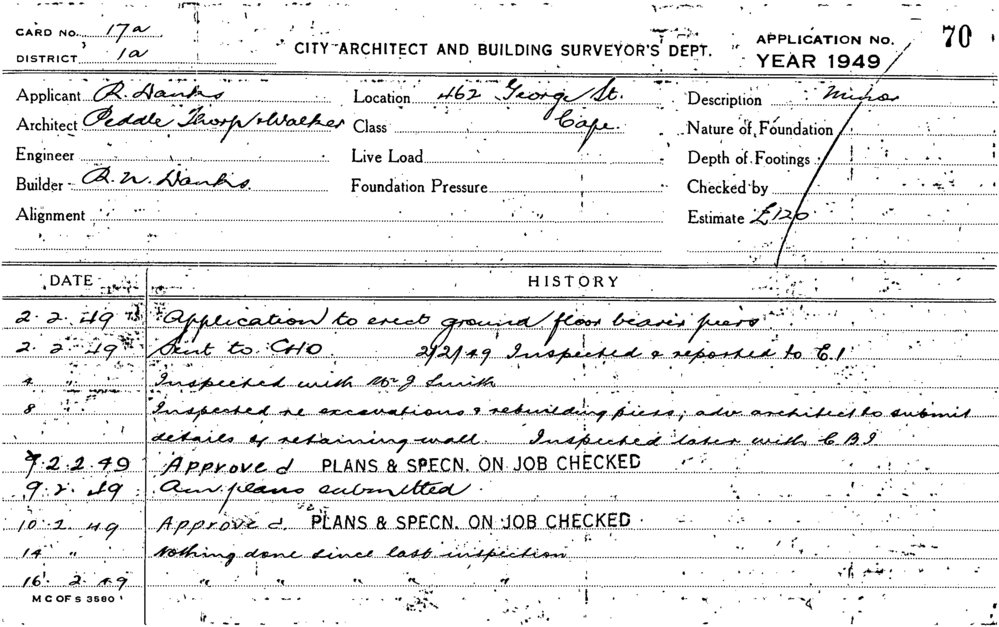 CARD NO. 17a
DISTRICT 1a
CITY ARCHITECT AND BUILDING SURVEYOR'S DEPT.
APPLICATION NO. 70
YEAR 1949
Applicant R. Hanks Location 462 George St. Description Minor
Architect Peddle Thorp & Walker Class Cafe. Nature of Foundation
Engineer Live Load Depth of Footings
Builder R. W. Hanks. Foundation Pressure Checked by
Alignment Estimate £120
DATE HISTORY
2. 2. 49 Application to erect ground floor bearer piers
2. 2. 49 Sent to CHO 2/2/49 Inspected & reported to C.I
4 " Inspected with Mr J Smith
8 Inspected re excavations & rebuilding piers, adv architect to submit
details of retaining wall. Inspected later with C B I
2. 2. 49 Approved PLANS & SPECN. ON JOB CHECKED
9. 2. 49 Am plans submitted.
10. 2. 49 Approved. PLANS & SPECN. ON JOB CHECKED
14 " Nothing done since last inspection
16. 2. 49 " " " " "
M C OF S 3580